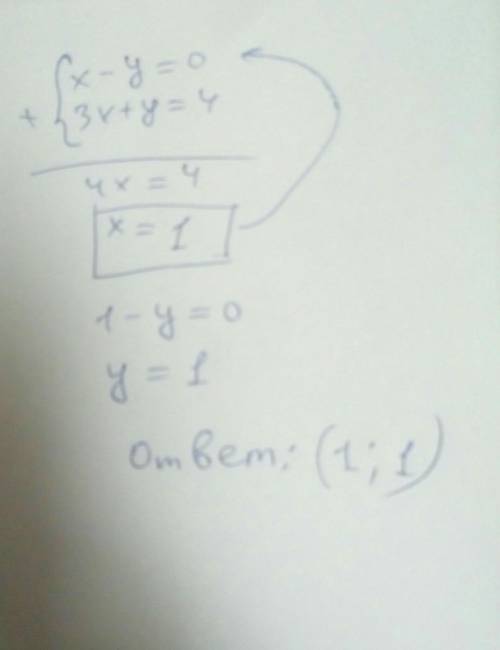 {x - y = 0
+ {3x + y = 4
4x = 4
x = 1
1 - y = 0
y = 1
Ответ: (1; 1)